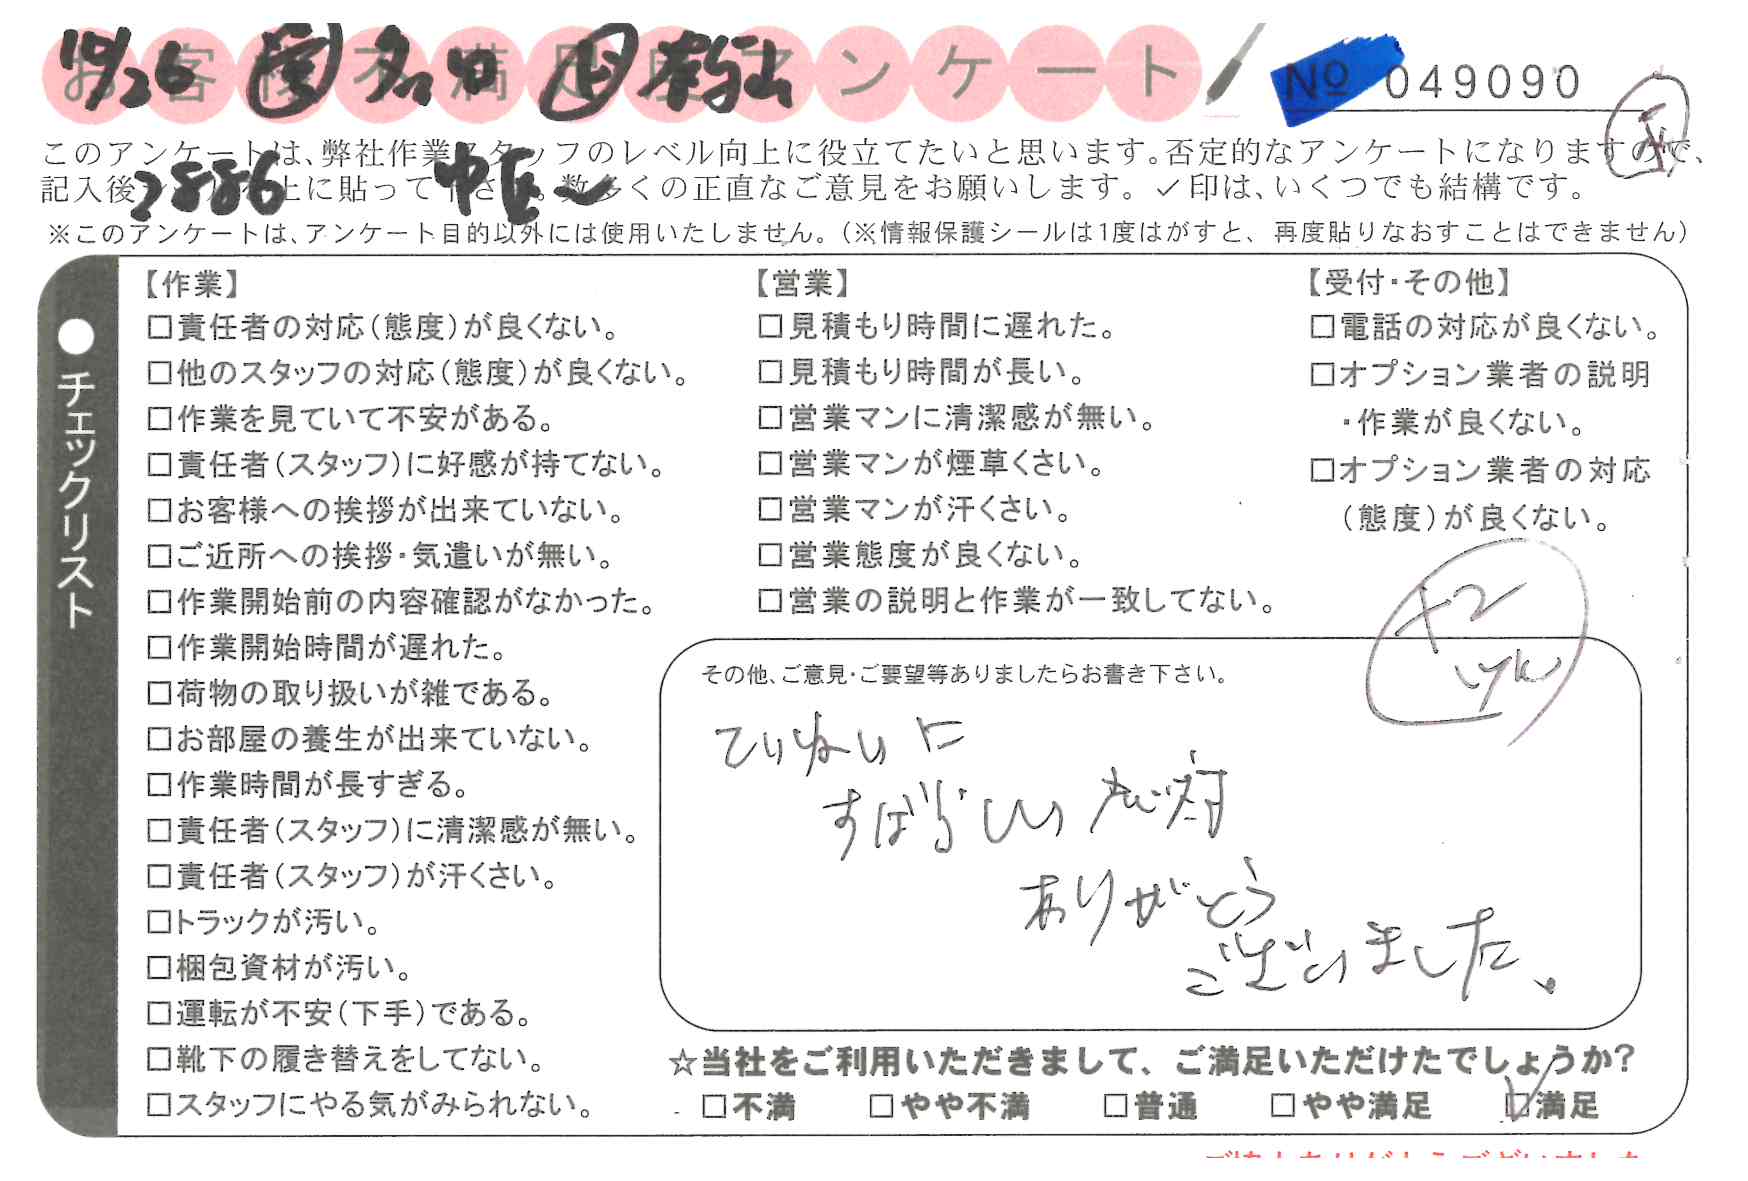 お客様不満足度アンケート
10/26
№ 049090
このアンケートは、弊社作業スタッフのレベル向上に役立てたいと思います。否定的なアンケートになりますので、
記入後シールを上に貼って下さい。数多くの正直なご意見をお願いします。✓印は、いくつでも結構です。
2886
※このアンケートは、アンケート目的以外には使用いたしません。(※情報保護シールは1度はがすと、再度貼りなおすことはできません)
●チェックリスト
【作業】
□責任者の対応(態度)が良くない。
□他のスタッフの対応(態度)が良くない。
□作業を見ていて不安がある。
□責任者(スタッフ)に好感が持てない。
□お客様への挨拶が出来ていない。
□ご近所への挨拶・気遣いが無い。
□作業開始前の内容確認がなかった。
□作業開始時間が遅れた。
□荷物の取り扱いが雑である。
□お部屋の養生が出来ていない。
□作業時間が長すぎる。
□責任者(スタッフ)に清潔感が無い。
□責任者(スタッフ)が汗くさい。
□トラックが汚い。
□梱包資材が汚い。
□運転が不安(下手)である。
□靴下の履き替えをしてない。
□スタッフにやる気がみられない。
【営業】
□見積もり時間に遅れた。
□見積もり時間が長い。
□営業マンに清潔感が無い。
□営業マンが煙草くさい。
□営業マンが汗くさい。
□営業態度が良くない。
□営業の説明と作業が一致してない。
【受付・その他】
□電話の対応が良くない。
□オプション業者の説明
・作業が良くない。
□オプション業者の対応
(態度)が良くない。
+2
その他、ご意見・ご要望等ありましたらお書き下さい。
ていねいに
すばらしい応対
ありがとう
ございました、
☆当社をご利用いただきまして、ご満足いただけたでしょうか?
□不満 □やや不満 □普通 □やや満足 ☑満足
ご協力ありがとうございました